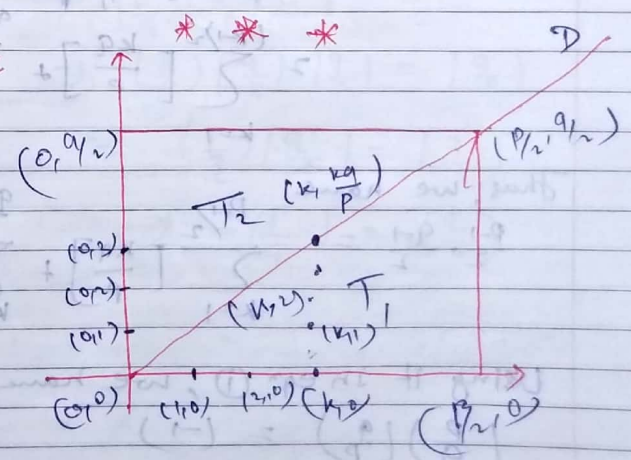 * * *
D
(0, q/2)
(p/2, q/2)
T2
(k, kq/p)
(0,2)
(0,2)
(k,2)
T1
(0,1)
(k,1)
(0,0)
(1,0)
(2,0)
(k,0)
(p/2, 0)